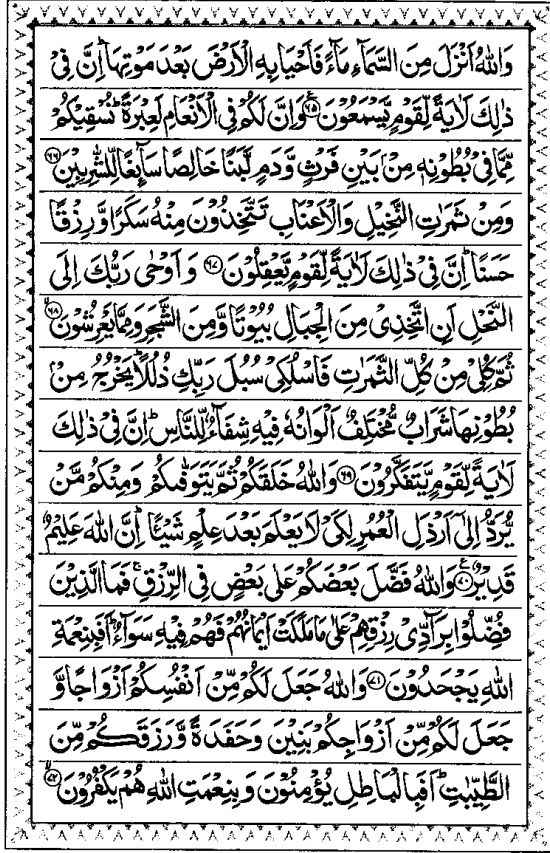 وَاللّٰهُ اَنْزَلَ مِنَ السَّمَآءِ مَآءً فَاَحْيَا بِهِ الْاَرْضَ بَعْدَ مَوْتِهَا ؕ اِنَّ فِىْ
ذٰلِكَ لَاٰيَةً لِّقَوْمٍ يَّسْمَعُوْنَ ﴿۶۵﴾ وَاِنَّ لَكُمْ فِى الْاَنْعَامِ لَعِبْرَةً ؕ نُسْقِيْكُمْ
مِّمَّا فِىْ بُطُوْنِهٖ مِنْۢ بَيْنِ فَرْثٍ وَّدَمٍ لَّبَنًا خَالِصًا سَآئِغًا لِّلشّٰرِبِيْنَ ﴿۶۶﴾
وَمِنْ ثَمَرٰتِ النَّخِيْلِ وَالْاَعْنَابِ تَتَّخِذُوْنَ مِنْهُ سَكَرًا وَّرِزْقًا
حَسَنًا ؕ اِنَّ فِىْ ذٰلِكَ لَاٰيَةً لِّقَوْمٍ يَّعْقِلُوْنَ ﴿۶۷﴾ وَاَوْحٰى رَبُّكَ اِلَى
النَّحْلِ اَنِ اتَّخِذِىْ مِنَ الْجِبَالِ بُيُوْتًا وَّمِنَ الشَّجَرِ وَمِمَّا يَعْرِشُوْنَ ۙ﴿۶۸﴾
ثُمَّ كُلِىْ مِنْ كُلِّ الثَّمَرٰتِ فَاسْلُكِىْ سُبُلَ رَبِّكِ ذُلُلًا ؕ يَخْرُجُ مِنْۢ
بُطُوْنِهَا شَرَابٌ مُّخْتَلِفٌ اَلْوَانُهٗ فِيْهِ شِفَآءٌ لِّلنَّاسِ ؕ اِنَّ فِىْ ذٰلِكَ
لَاٰيَةً لِّقَوْمٍ يَّتَفَكَّرُوْنَ ﴿۶۹﴾ وَاللّٰهُ خَلَقَكُمْ ثُمَّ يَتَوَفّٰىكُمْ وَمِنْكُمْ مَّنْ
يُّرَدُّ اِلٰٓى اَرْذَلِ الْعُمُرِ لِكَىْ لَا يَعْلَمَ بَعْدَ عِلْمٍ شَيْـًٔا ؕ اِنَّ اللّٰهَ عَلِيْمٌ
قَدِيْرٌ ﴿۷۰﴾ وَاللّٰهُ فَضَّلَ بَعْضَكُمْ عَلٰى بَعْضٍ فِى الرِّزْقِ ۚ فَمَا الَّذِيْنَ
فُضِّلُوْا بِرَآدِّىْ رِزْقِهِمْ عَلٰى مَا مَلَكَتْ اَيْمَانُهُمْ فَهُمْ فِيْهِ سَوَآءٌ ؕ اَفَبِنِعْمَةِ
اللّٰهِ يَجْحَدُوْنَ ﴿۷۱﴾ وَاللّٰهُ جَعَلَ لَكُمْ مِّنْ اَنْفُسِكُمْ اَزْوَاجًا وَّ
جَعَلَ لَكُمْ مِّنْ اَزْوَاجِكُمْ بَنِيْنَ وَحَفَدَةً وَّرَزَقَكُمْ مِّنَ
الطَّيِّبٰتِ ؕ اَفَبِالْبَاطِلِ يُؤْمِنُوْنَ وَبِنِعْمَتِ اللّٰهِ هُمْ يَكْفُرُوْنَ ۙ﴿۷۲﴾